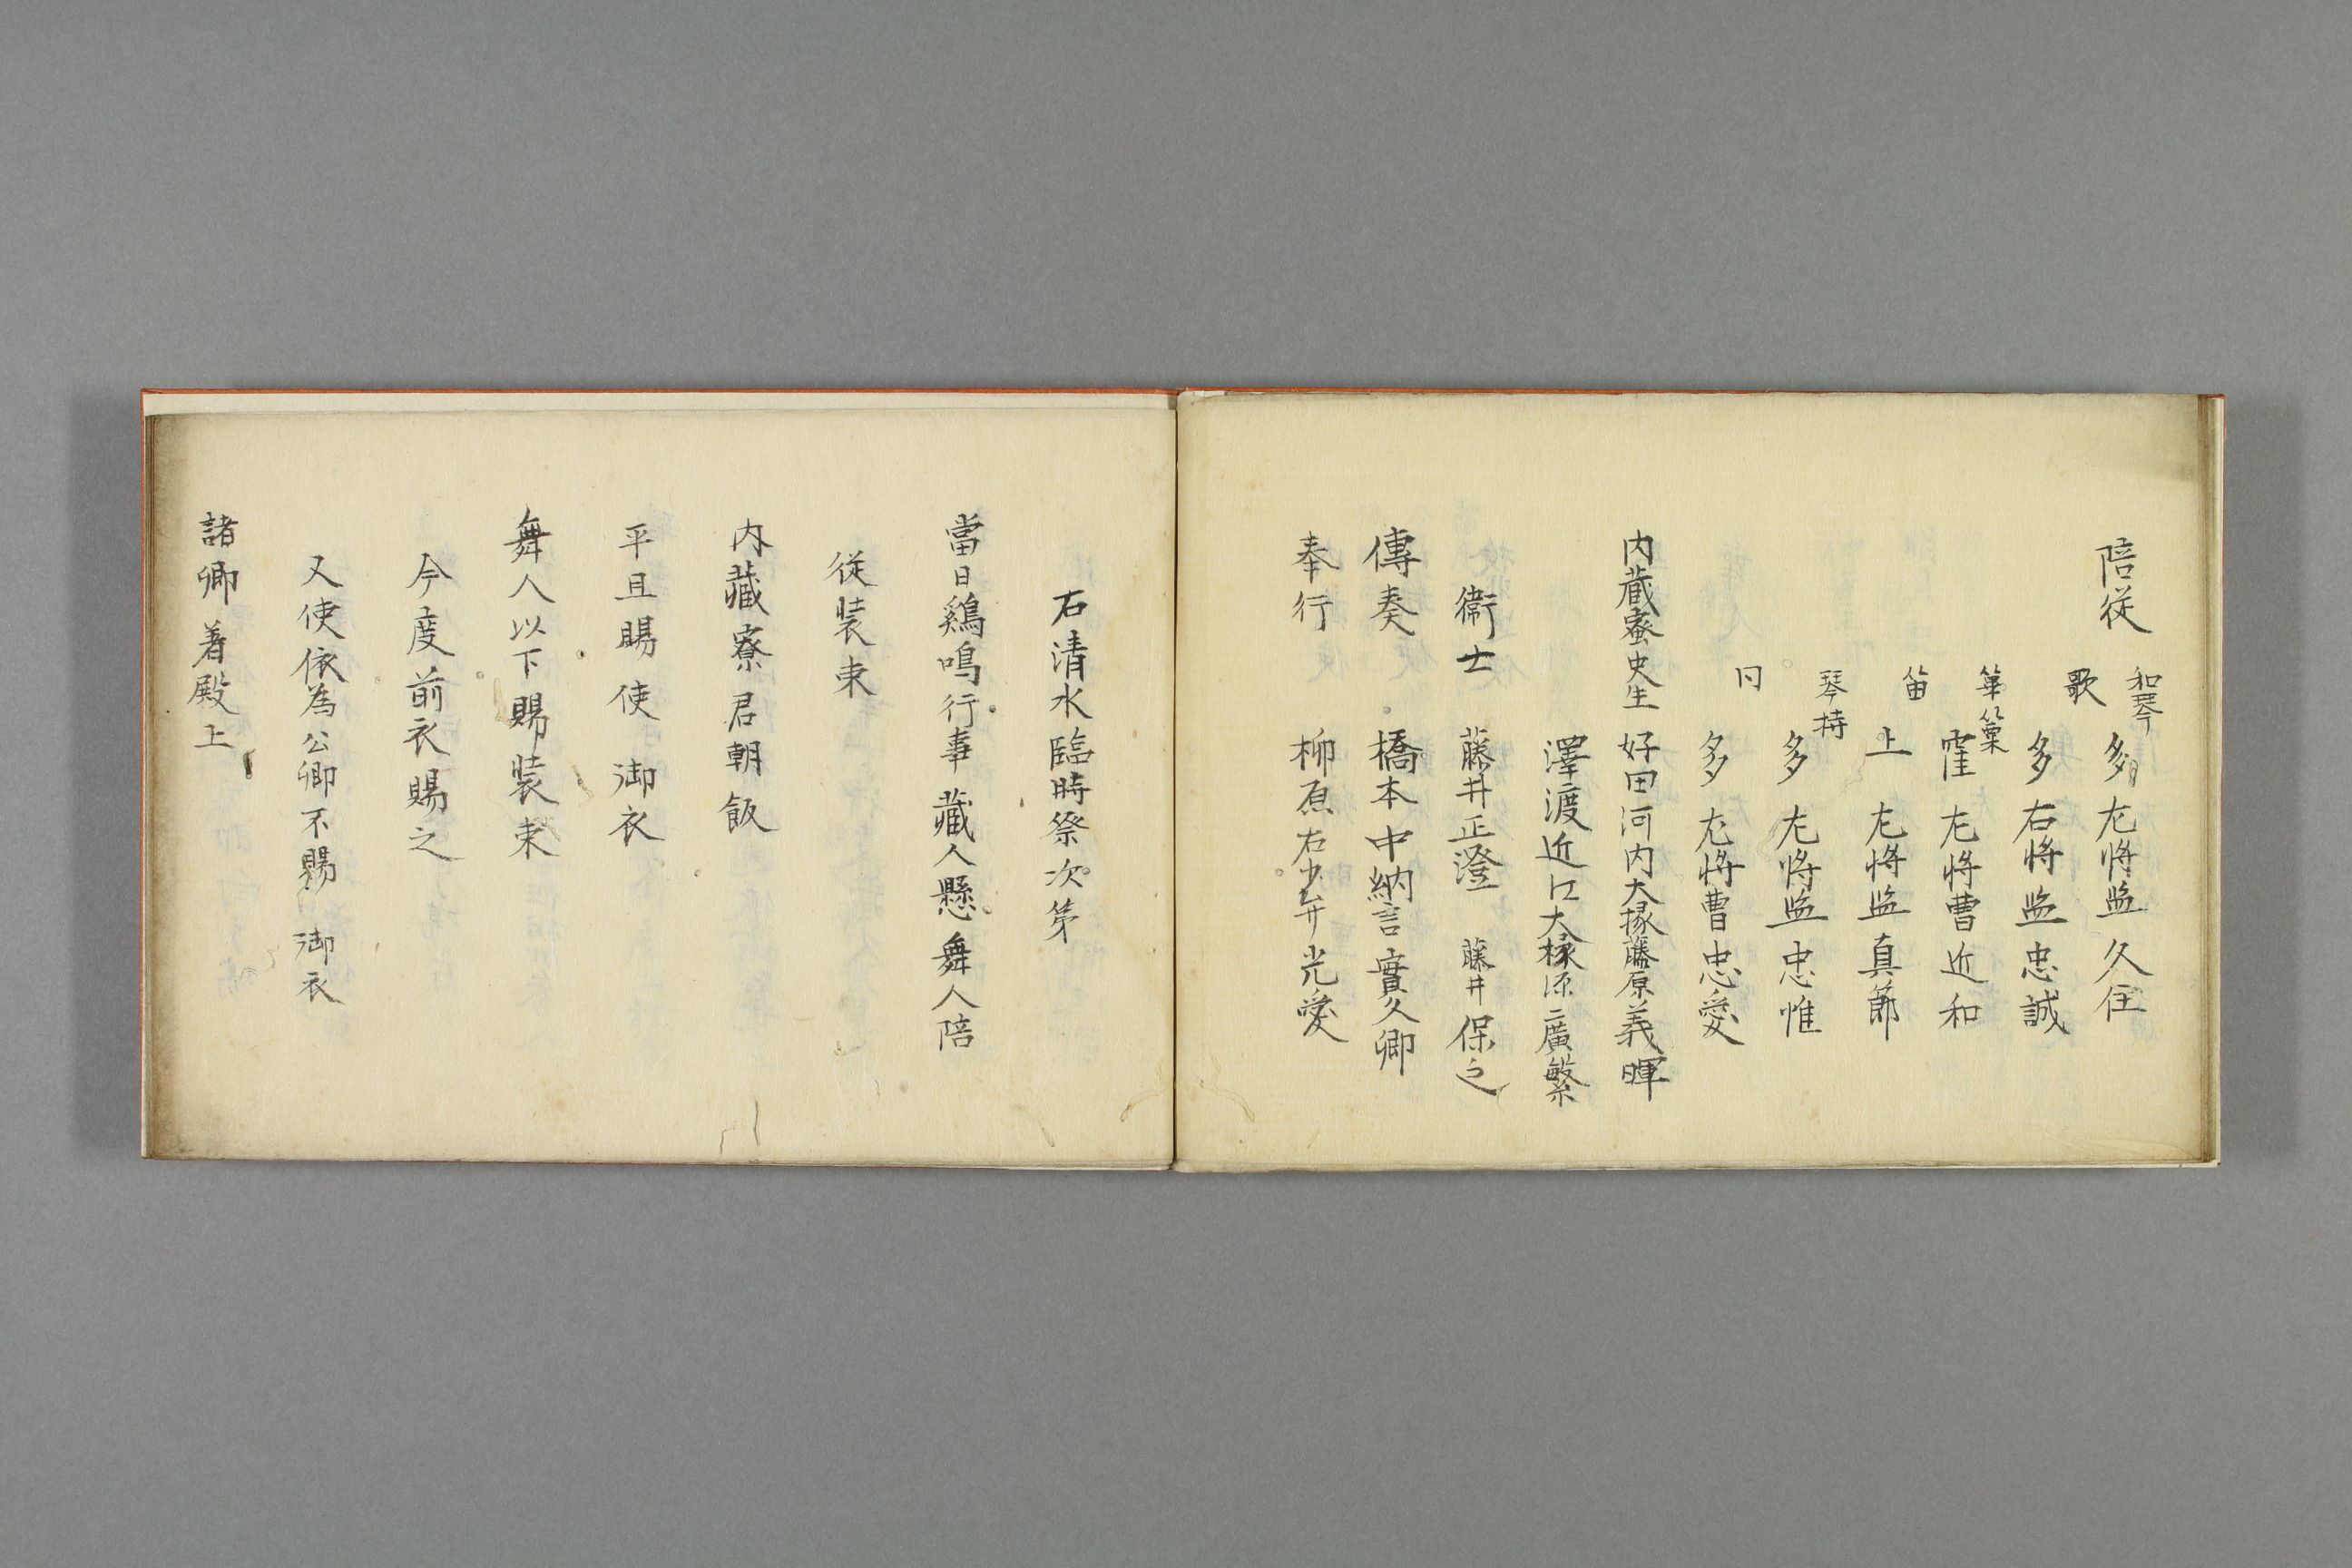 陪従
和琴 多 左将監 久住
歌 多 右将監 忠誠
篳篥 窪 左将曹 近和
笛 上 左将監 真節
琴持 多 左将監 忠惟
同 多 左将曹 忠愛
内蔵寮史生 好田河内大掾藤原義暉
澤渡近江大掾源廣繁
衛士 藤井正澄 藤井保之
傳奏 橋本中納言實久卿
奉行 柳原右少弁光愛
石清水臨時祭次第
當日鷄鳴行事藏人懸舞人陪
従装束
内藏寮君朝飯
平旦賜使御衣
舞人以下賜装束
今度前衣賜之
又使依為公卿不賜 御衣
諸卿着殿上